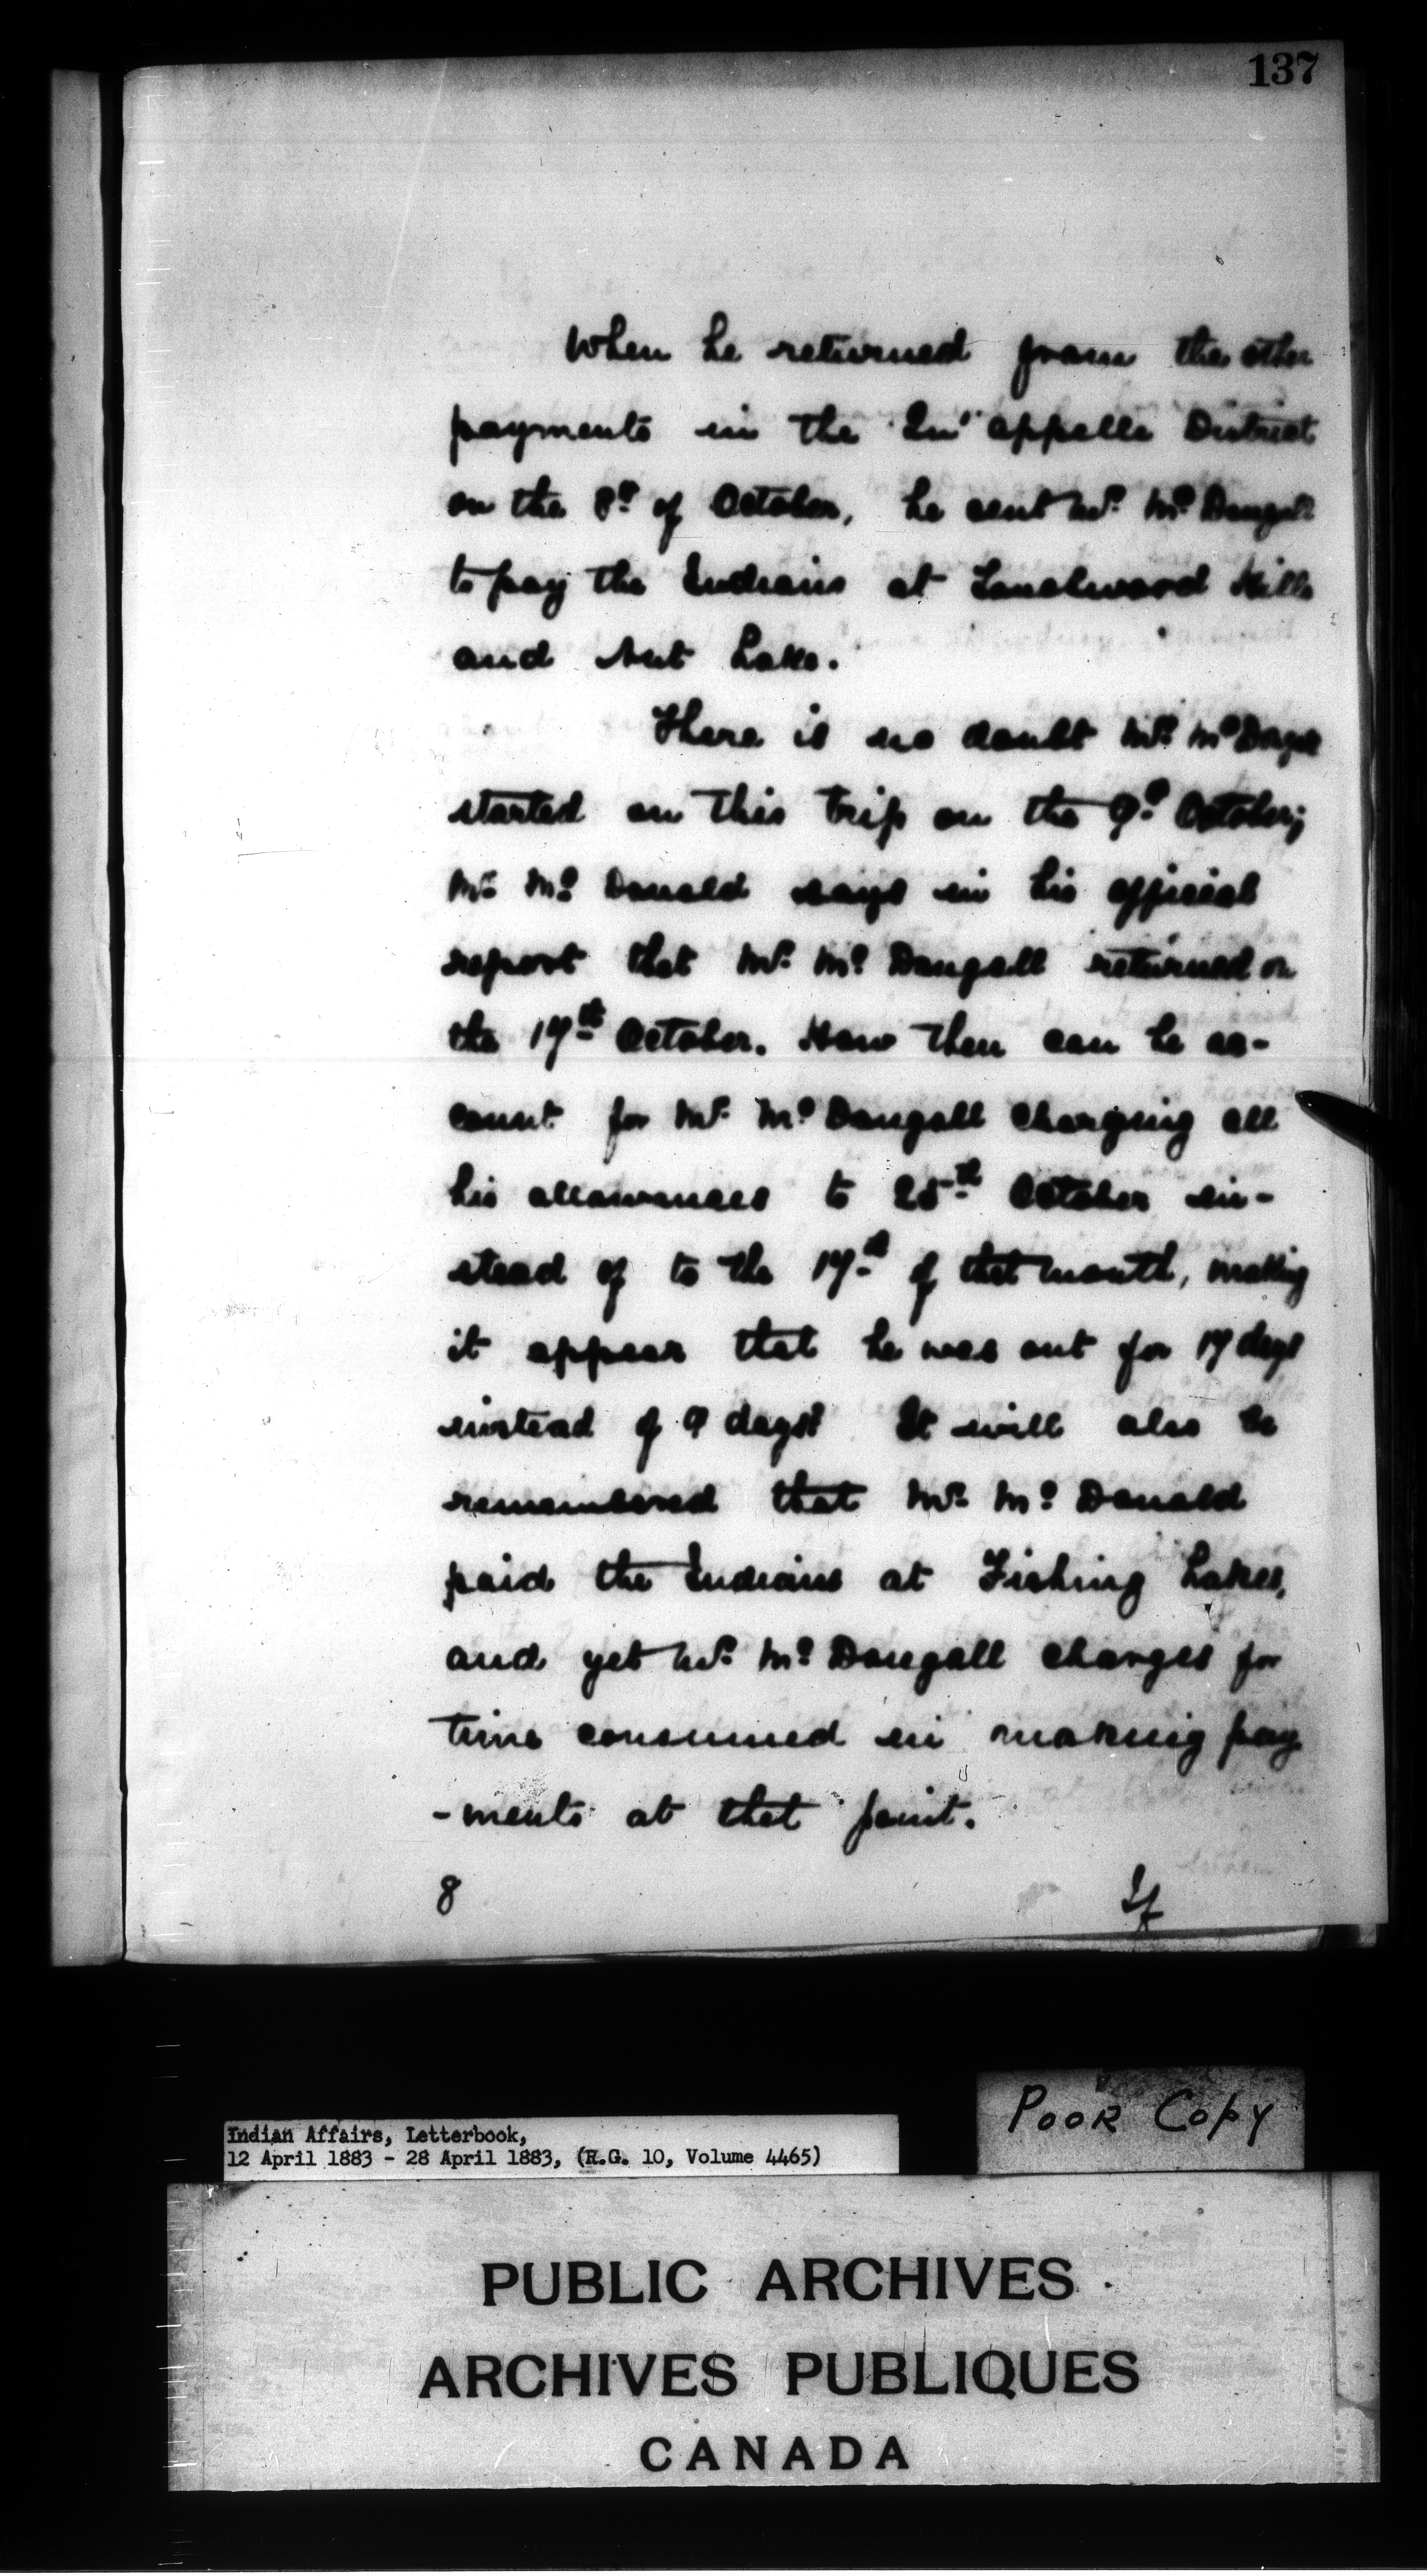 137
When he returned from the other
payments in the Qu'appelle District
on the 8th of October, he sent Mr. McDougall
to pay the Indians at Touchwood Hills
and Nut Lake.
There is no doubt Mr. McDougall
started on this trip on the 9th October;
Mr. McDonald says in his official
report that Mr. McDougall returned on
the 17th October. How then can he ac-
count for Mr. McDougall charging all
his allowances to 25th October in-
stead of to the 17th of that month, making
it appear that he was out for 17 days
instead of 9 days? It will also be
remembered that Mr. McDonald
paid the Indians at Fishing Lakes,
and yet Mr. McDougall charges for
time consumed in making pay
-ments at that point.
8 If
Poor Copy
Indian Affairs, Letterbook,
12 April 1883 - 28 April 1883, (R.G. 10, Volume 4465)
PUBLIC ARCHIVES
ARCHIVES PUBLIQUES
CANADA